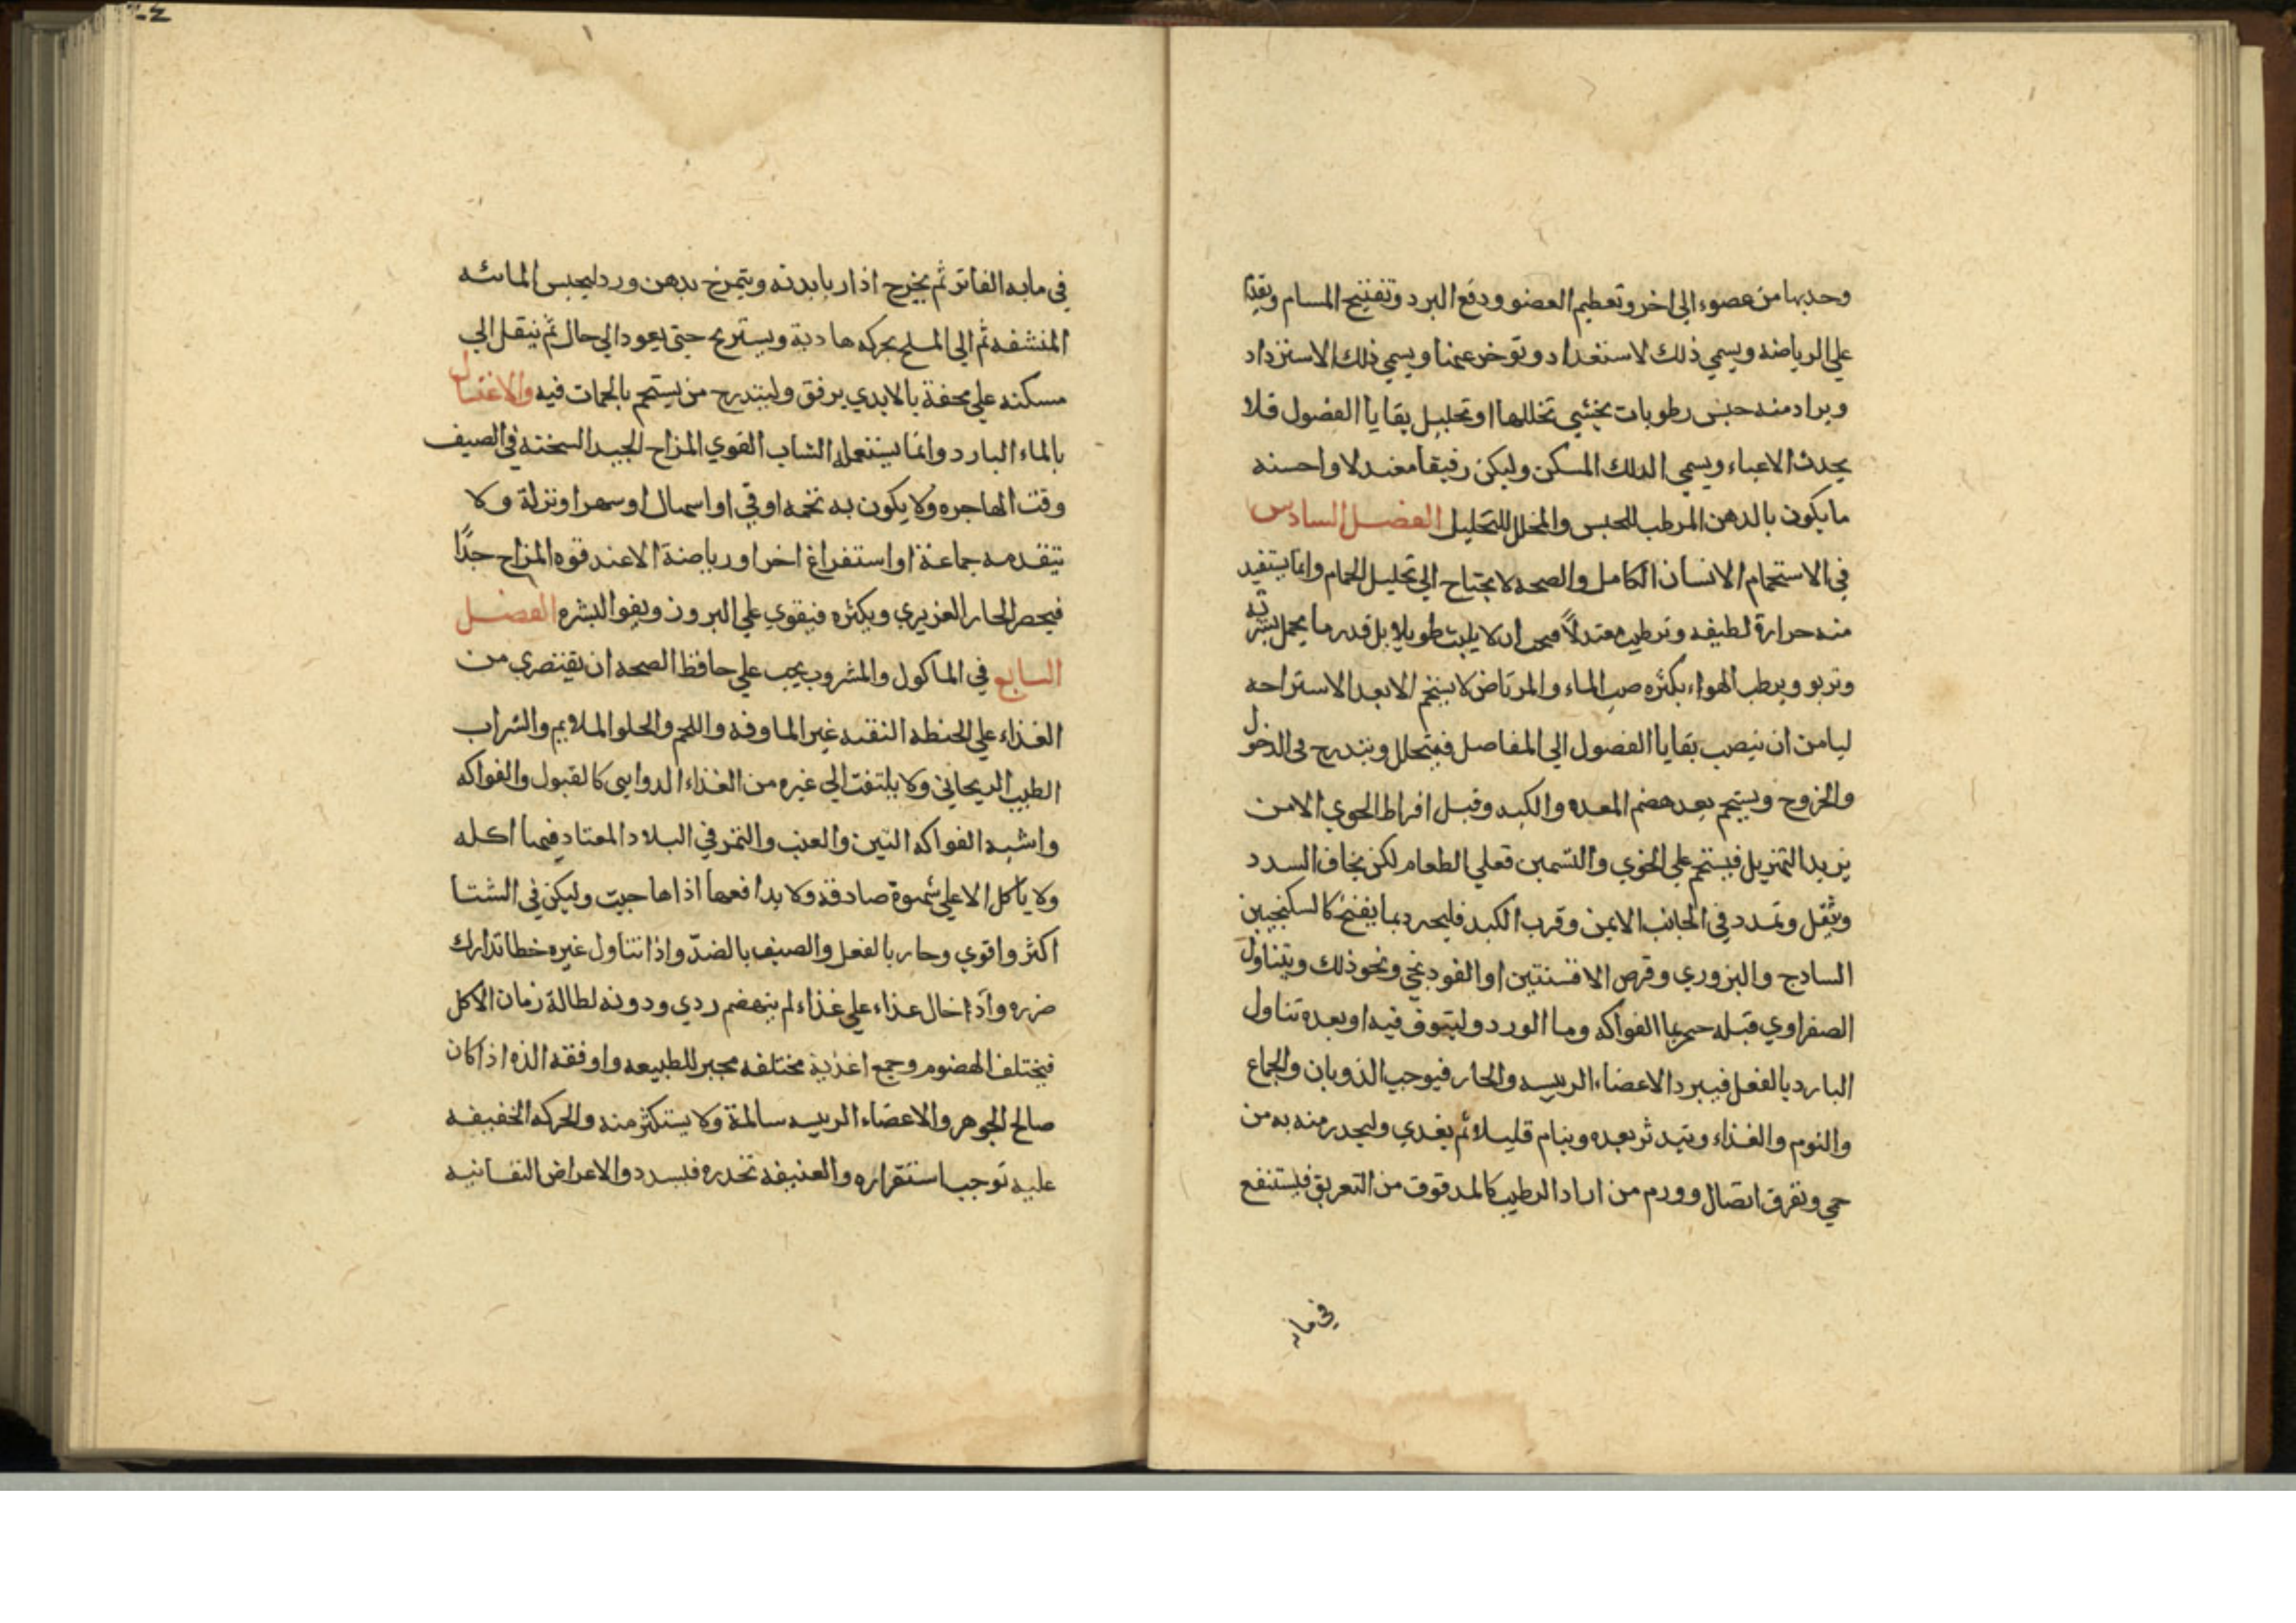 وحدبها من عضوء الي اخر وتعطيم العضو ودفع البرد وتفتيح المسام
علي الرياضه ويسمي ذلك لاستعداد وتوخر عنها ويسمي ذلك الاستزداد
ويراد منه حبس رطوبات يخشي تخللها او تحليل بقايا الفضول فلا
يحدث الاعياء ويسمي الدلك المسكن وليكن رفيقا معتدلا واحسنه
ما يكون بالدهن المرطب للحبس والمحلل للتحليل الفصل السادس
في الاستحمام الانسان الكامل والصحه لا يحتاج الي تحليل الحمام وانما يستفيد
منه حرارة لطيفه وترطيب معتدلاً فيجب ان لا يلبث طويلا بل قدر ما يحمل بشرته
وتربو ويرطب الهواء بكثره صب الماء والمرتاض لا يستحم الا بعد الاستراحه
ليامن ان ينصب بقايا الفضول الي المفاصل فيتحلل ويتدرج في الدخول
والخروج ويستحم بعد هضم المعده والكبد وقبل افراط الجوي الا من
يريد التهزيل فيستحم علي الخوي والتسمين فعلي الطعام لكن يخاف السدد
وثقل وتمدد في الجانب الايمن وقرب الكبد بما يفتح كالسكنجبين
السادج والبزوري وقرص الافسنتين او الفودنجي ونحو ذلك ويتناول
الصفراوي قبله الفواكه وما الورد وليتوق فيه او بعده تناول
البارد بالفعل فيبرد الاعضاء الرييسه والحار فيوجب الذوبان والجماع
والنوم والغذاء ويتدثر بعده وينام قليلا ثم يغدي وليحدر منه به من
حمي وتفرق اتصال وورم من اراد الرطيب كالمدقوق من التعريق فيستنفع
في مابه
في مابه الفاتر ثم يخرج اذا ربا بدنه ويتمرخ بدهن ورد ليحبس المائيه
المنشفه ثم الي المسلح بحركه هادية ويستريح حتي يعود الي حال ثم ينقل الي
مسكنه علي محفة بالايدي برفق وليتدرج من يستحم بالحمات فيه والاغتسال
بالماء البارد وانما يستعمله الشاب القوي المزاج الجيد السخته في الصيف
وقت الهاجره ولا يكون به تخمه او قي او اسهال او سهر او نزلة ولا
يتقدمه جماعة او استفراغ اخر او رياضة الا عند قوه المزاج جدًّا
فيحصر الحار الغريزي ويكثره فيقوي علي البروز ويقوا البشره الفصل
السابع في الماكول والمشروب يجب علي حافظ الصحه ان يقتصري من
الغذاء علي الحنطه النقيه غير الماوفه واللحم والحلو الملايم والشراب
الطيب الريحاني ولا يلتفت الي غيره من الغذاء الدوايي كالقبول والفواكه
واشبه الفواكه التين والعنب والتمر في البلاد المعتاد فيها اكله
ولا ياكل الا علي شهوة صادقه ولا يدافعها اذا هاجيت وليكن في الشتا
اكثر واقوي وحار بالفعل والصيف بالضدّ واذا تناول غيره خطا تدارك
ضرره وادخال عذاء علي غذاء لم ينهضم ردي ودونه لطالة زمان الاكل
فيختلف الهضوم وجمع اغذية مختلفه محبر للطبيعه واوفقه الذه اذا كان
صالح الجوهر والاعضاء الرييسه سالمة ولا يستكثر منه والحركه الخفيفه
عليه توجب استقراره والعنيفه تخدره فيسدد والاعراض النفسانيه